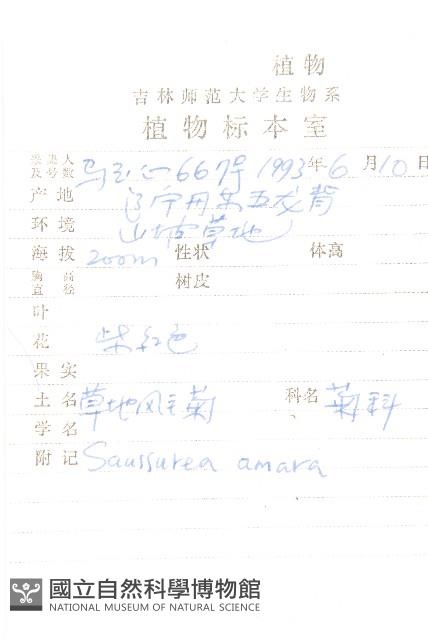 植物
吉林师范大学生物系
植物标本室
采集人及号数 马 667号 1993年6月10日
产地 辽宁丹东五龙背
环境 山坡草地
海拔 200m 性状 体高
胸高直径 树皮
叶
花 紫红色
果实
土名 草地风毛菊 科名 菊科
学名
附记 Saussurea amara
國立自然科學博物館
NATIONAL MUSEUM OF NATURAL SCIENCE